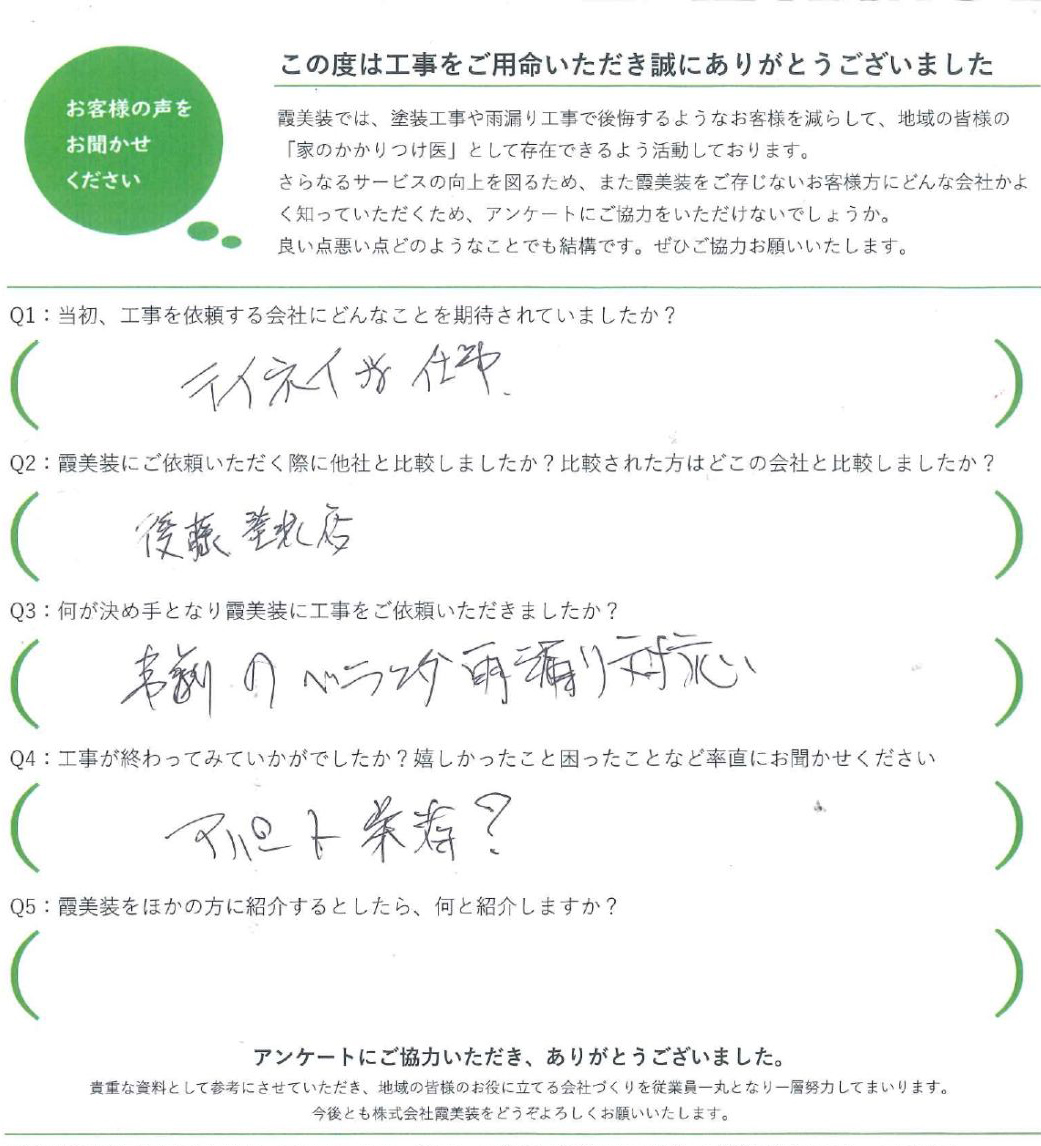 お客様の声を
お聞かせ
ください
この度は工事をご用命いただき誠にありがとうございました
霞美装では、塗装工事や雨漏り工事で後悔するようなお客様を減らして、地域の皆様の
「家のかかりつけ医」として存在できるよう活動しております。
さらなるサービスの向上を図るため、また霞美装をご存じないお客様方にどんな会社かよ
く知っていただくため、アンケートにご協力をいただけないでしょうか。
良い点悪い点どのようなことでも結構です。ぜひご協力お願いいたします。
Q1：当初、工事を依頼する会社にどんなことを期待されていましたか？
テイネイな仕事.
Q2：霞美装にご依頼いただく際に他社と比較しましたか？比較された方はどこの会社と比較しましたか？
後藤塗装店
Q3：何が決め手となり霞美装に工事をご依頼いただきましたか？
のベランダ雨漏り対応
Q4：工事が終わってみていかがでしたか？嬉しかったこと困ったことなど率直にお聞かせください
アパート業者？
Q5：霞美装をほかの方に紹介するとしたら、何と紹介しますか？
アンケートにご協力いただき、ありがとうございました。
貴重な資料として参考にさせていただき、地域の皆様のお役に立てる会社づくりを従業員一丸となり一層努力してまいります。
今後とも株式会社霞美装をどうぞよろしくお願いいたします。